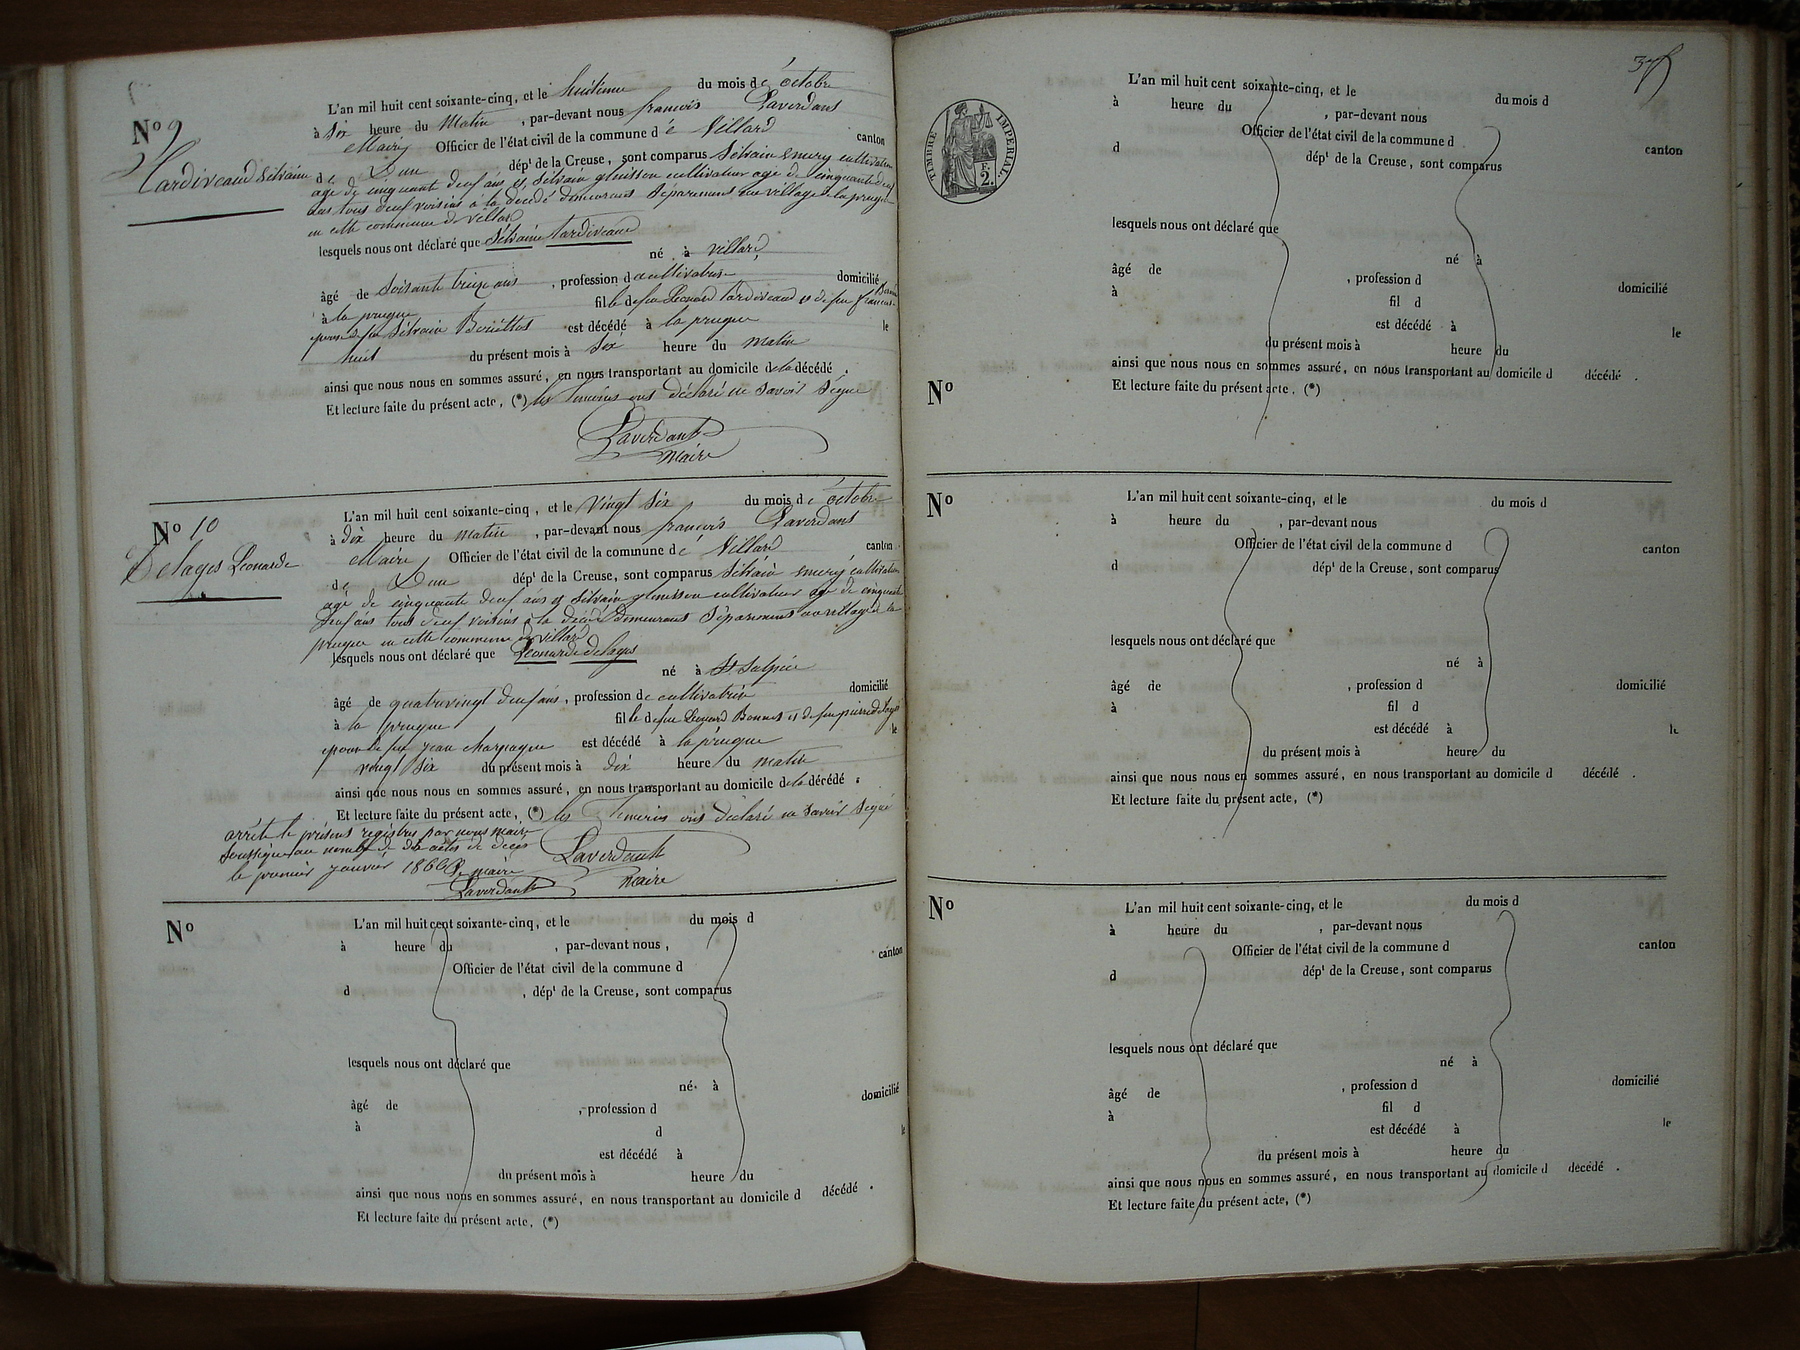 N° 9
Tardiveaud Silvaine
L'an mil huit cent soixante-cinq, et le huitieme du mois de octobre
à Six heure du Matin, par-devant nous francois Laverdant
Maire Officier de l'état civil de la commune de Villard canton
de Dun dépt de la Creuse, sont comparus Silvain emery cultivateur
age de cinquant deuf ans et Silvain glenisson cultivateur age de cinquante deuf
ans tous deuf voisins a la decedé demeurant Séparément au village de la prugne
en cette commune de villard
lesquels nous ont déclaré que Silvaine tardiveaud
né à villard,
âgé de Soisante treize ans, profession de cultivatrise domicilié
à la prugne fille de feu Léonard tardiveaud et de feu francois
epouse de feu Silvain est décédé à la prugne le
huit du présent mois à Six heure du matin
ainsi que nous nous en sommes assuré, en nous transportant au domicile de la décédé.
Et lecture faite du présent acte, (*) les temoins ont déclaré ne Savoir Signé
Laverdant
Maire
N° 10
Delages Leonarde
L'an mil huit cent soixante-cinq, et le Vingt Six du mois de octobre
à dix heure du matin, par-devant nous francois Laverdant
Maire Officier de l'état civil de la commune de Villard canton
de Dun dépt de la Creuse, sont comparus Silvain emery cultivateur
age de cinquante deuf ans et Silvain glenisson cultivateur age de cinquante
deuf ans tous deuf voisins a la decedé demeurant Séparément au village de la
prugne en cette commune de villard
lesquels nous ont déclaré que Leonarde delages
né à St Sulpice
âgé de quatrevingt deuf ans, profession de cultivatrise domicilié
à la prugne fille de feu Leonard Bonnet et de feu pierre delages
epouse de feu jean charpagne est décédé à la prugne le
vingt Six du présent mois à dix heure du matin
ainsi que nous nous en sommes assuré, en nous transportant au domicile de la décédé.
Et lecture faite du présent acte, (*) les temoins ont déclaré ne Savoir Signé
arrête le présent registre par nous maire
Soussigné au nombre de dix actes de déces
le premier janvier 1866 Le maire
Laverdant
Laverdant
Maire
N°
L'an mil huit cent soixante-cinq, et le du mois d
à heure du , par-devant nous,
Officier de l'état civil de la commune d canton
d , dépt de la Creuse, sont comparus
lesquels nous ont déclaré que
né à
âgé de , profession d domicilié
à d le
est décédé à
du présent mois à heure du
ainsi que nous nous en sommes assuré, en nous transportant au domicile d décédé.
Et lecture faite du présent acte, (*)
TIMBRE IMPÉRIAL.
F.
2.
L'an mil huit cent soixante-cinq, et le du mois d
à heure du , par-devant nous
Officier de l'état civil de la commune d canton
d dépt de la Creuse, sont comparus
lesquels nous ont déclaré que
né à
âgé de , profession d domicilié
à fil d
est décédé à le
du présent mois à heure du
ainsi que nous nous en sommes assuré, en nous transportant au domicile d décédé.
N° Et lecture faite du présent acte, (*)
N°
L'an mil huit cent soixante-cinq, et le du mois d
à heure du , par-devant nous
Officier de l'état civil de la commune d canton
d dépt de la Creuse, sont comparus
lesquels nous ont déclaré que
né à
âgé de , profession d domicilié
à fil d
est décédé à le
du présent mois à heure du
ainsi que nous nous en sommes assuré, en nous transportant au domicile d décédé.
Et lecture faite du présent acte, (*)
N°
L'an mil huit cent soixante-cinq, et le du mois d
à heure du , par-devant nous
Officier de l'état civil de la commune d canton
d dépt de la Creuse, sont comparus
lesquels nous ont déclaré que
né à
âgé de , profession d domicilié
à fil d
est décédé à le
du présent mois à heure du
ainsi que nous nous en sommes assuré, en nous transportant au domicile d décédé.
Et lecture faite du présent acte, (*)